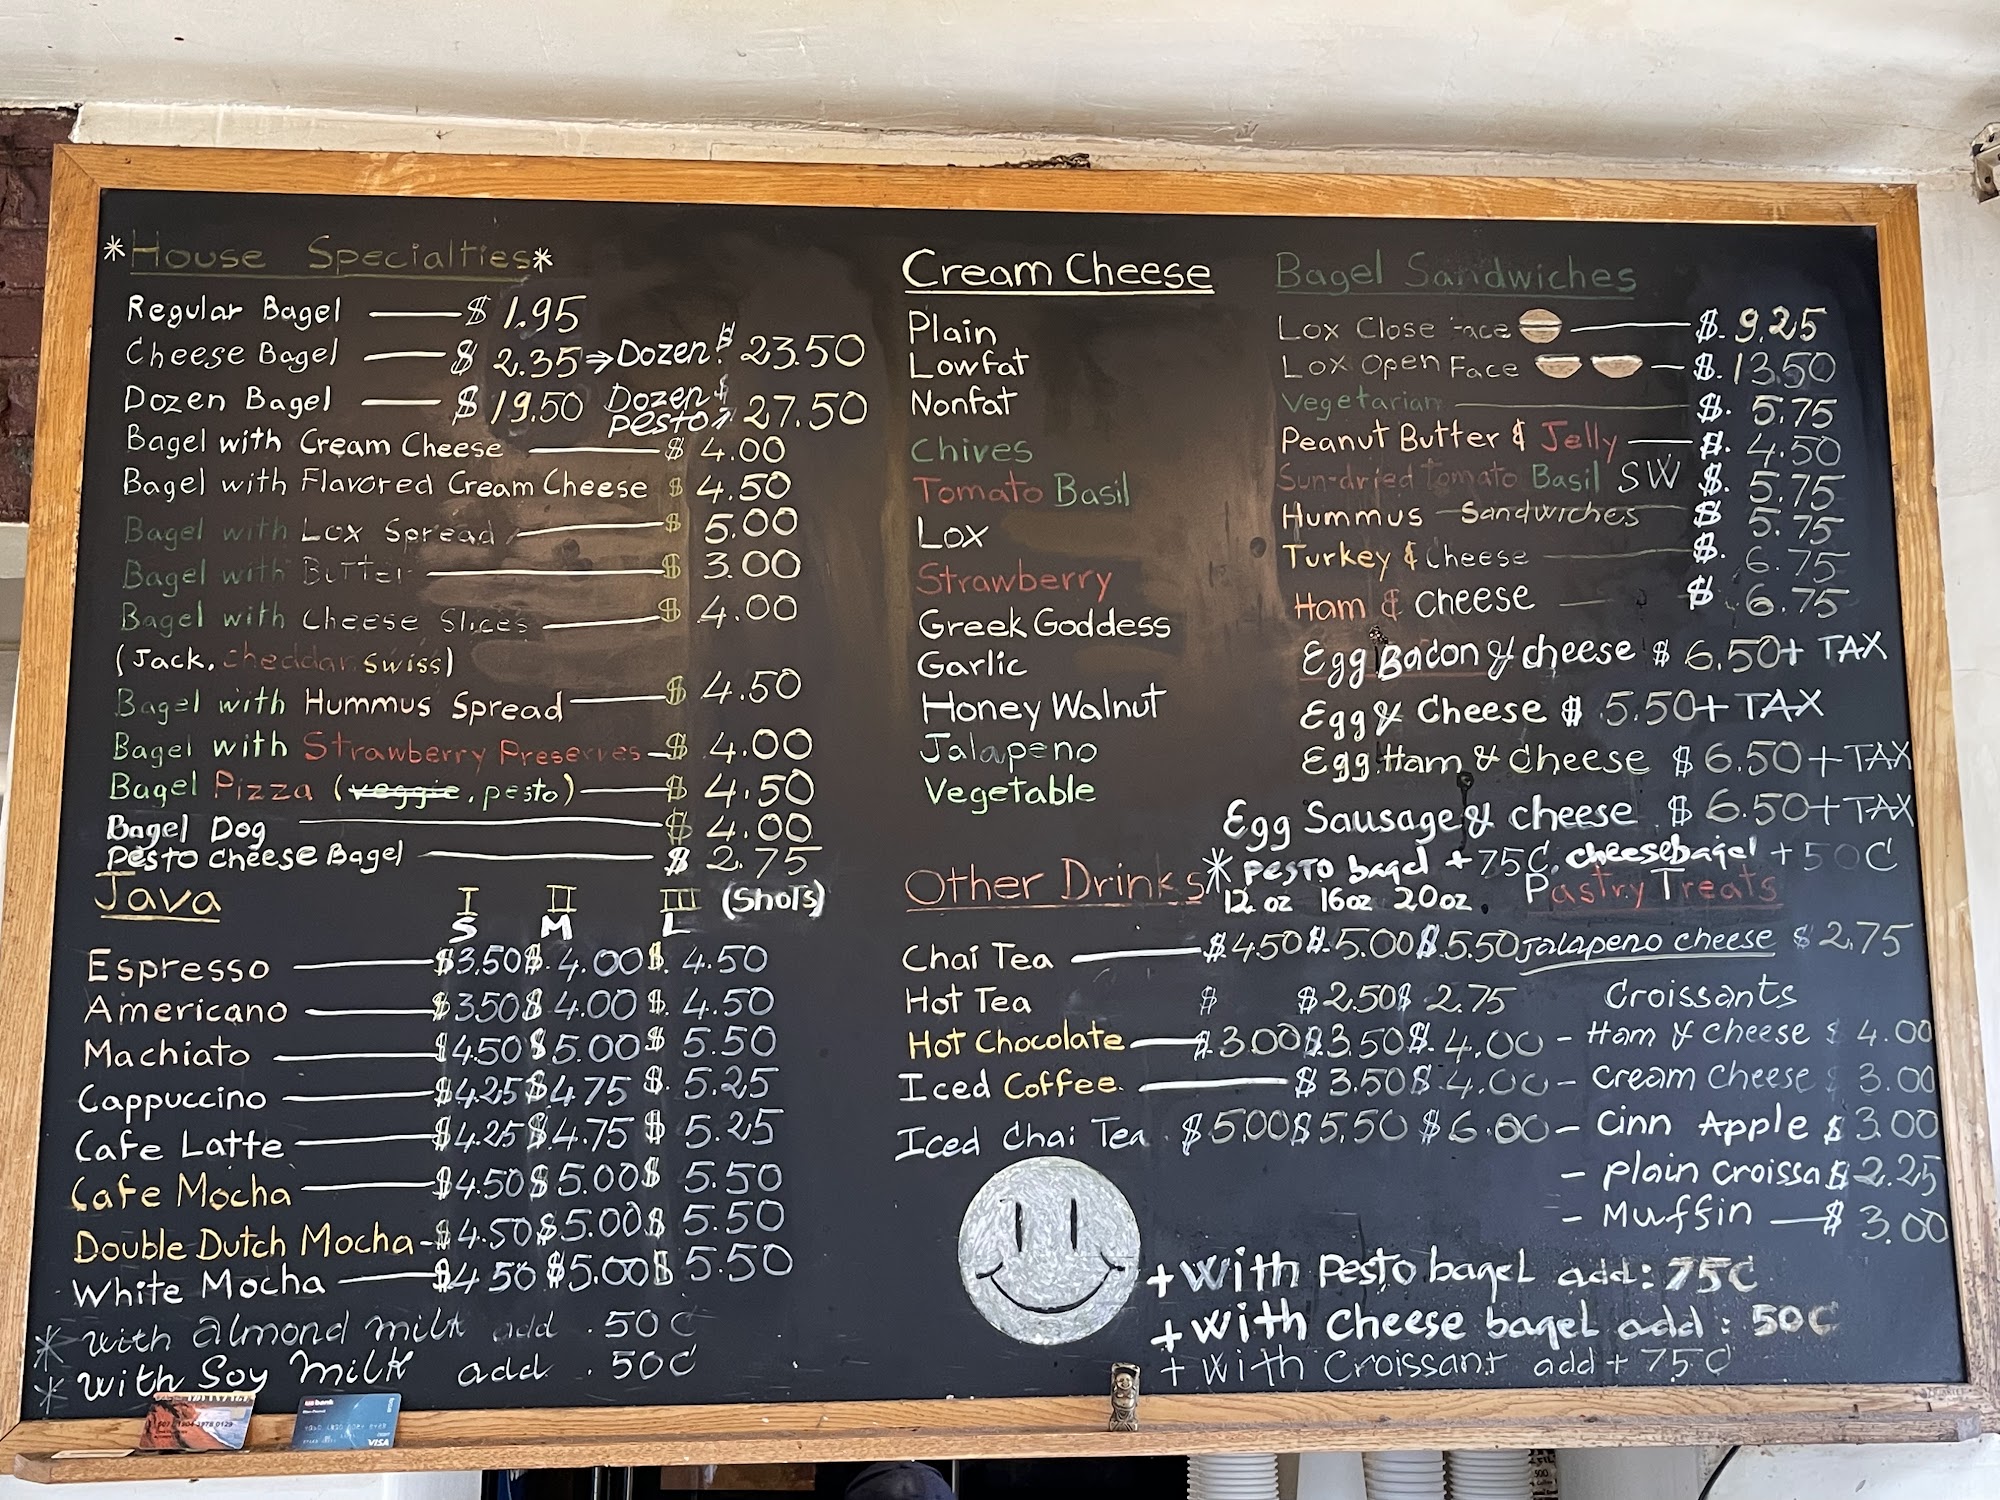 *House Specialties*
Regular Bagel $ 1.95
Cheese Bagel $ 2.35 ⇒ Dozen: $ 23.50
Dozen Bagel $ 19.50 Dozen $
pesto 27.50
Bagel with Cream Cheese $ 4.00
Bagel with Flavored Cream Cheese $ 4.50
Bagel with Lox Spread $ 5.00
Bagel with Butter $ 3.00
Bagel with Cheese Slices $ 4.00
(Jack, cheddar, swiss)
Bagel with Hummus Spread $ 4.50
Bagel with Strawberry Preserves $ 4.00
Bagel Pizza (veggie, pesto) $ 4.50
Bagel Dog $ 4.00
Pesto cheese Bagel $ 2.75
Java I II III (Shots)
S M L
Espresso $3.50 $. 4.00 $. 4.50
Americano $3.50 $ 4.00 $. 4.50
Machiato $4.50 $5.00 $ 5.50
Cappuccino $4.25 $4.75 $. 5.25
Cafe Latte $4.25 $4.75 $ 5.25
Cafe Mocha $4.50 $5.00 $ 5.50
Double Dutch Mocha $4.50 $5.00 $ 5.50
White Mocha $4.50 $5.00 $ 5.50
* with almond milk add .50¢
* with Soy milk add .50¢
Cream Cheese
Plain
Lowfat
Nonfat
Chives
Tomato Basil
Lox
Strawberry
Greek Goddess
Garlic
Honey Walnut
Jalapeno
Vegetable
Bagel Sandwiches
Lox Close Face $. 9.25
Lox Open Face $. 13.50
Vegetarian $. 5.75
Peanut Butter & Jelly $. 4.50
Sun-dried Tomato Basil SW $. 5.75
Hummus Sandwiches $ 5.75
Turkey & Cheese $. 6.75
Ham & Cheese $ 6.75
Egg Bacon & cheese $ 6.50 + TAX
Egg & Cheese $ 5.50 + TAX
Egg Ham & Cheese $ 6.50 + TAX
Egg Sausage & cheese $ 6.50 + TAX
* pesto bagel + 75¢, cheesebagel + 50¢
Other Drinks 12 oz 16oz 20oz
Chai Tea $.4.50 $.5.00 $.5.50
Hot Tea $ $2.50 $ 2.75
Hot Chocolate $.3.00 $3.50 $.4.00
Iced Coffee $ 3.50 $ 4.00
Iced Chai Tea $5.00 $5.50 $6.00
Pastry Treats
Jalapeno cheese $ 2.75
Croissants
- Ham & cheese $ 4.00
- cream cheese $ 3.00
- Cinn Apple $ 3.00
- plain croissa $ 2.25
- Muffin $ 3.00
+ With pesto bagel add: 75¢
+ With cheese bagel add: 50¢
+ With Croissant add + 75¢
usbank
VISA